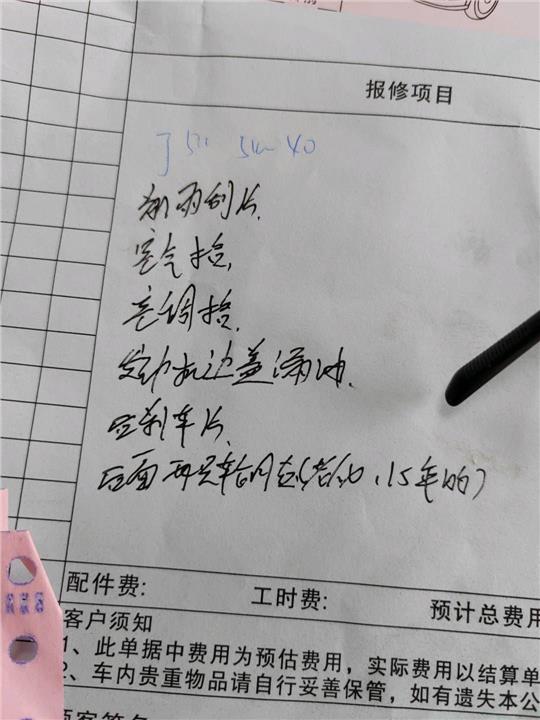 报修项目
5W-40
雨刮片.
空气格.
空调格.
发动机边盖漏油.
后刹车片.
后面两只轮胎(老化、15年的)
配件费:
工时费:
预计总费用
客户须知
1、此单据中费用为预估费用，实际费用以结算单
2、车内贵重物品请自行妥善保管，如有遗失本公